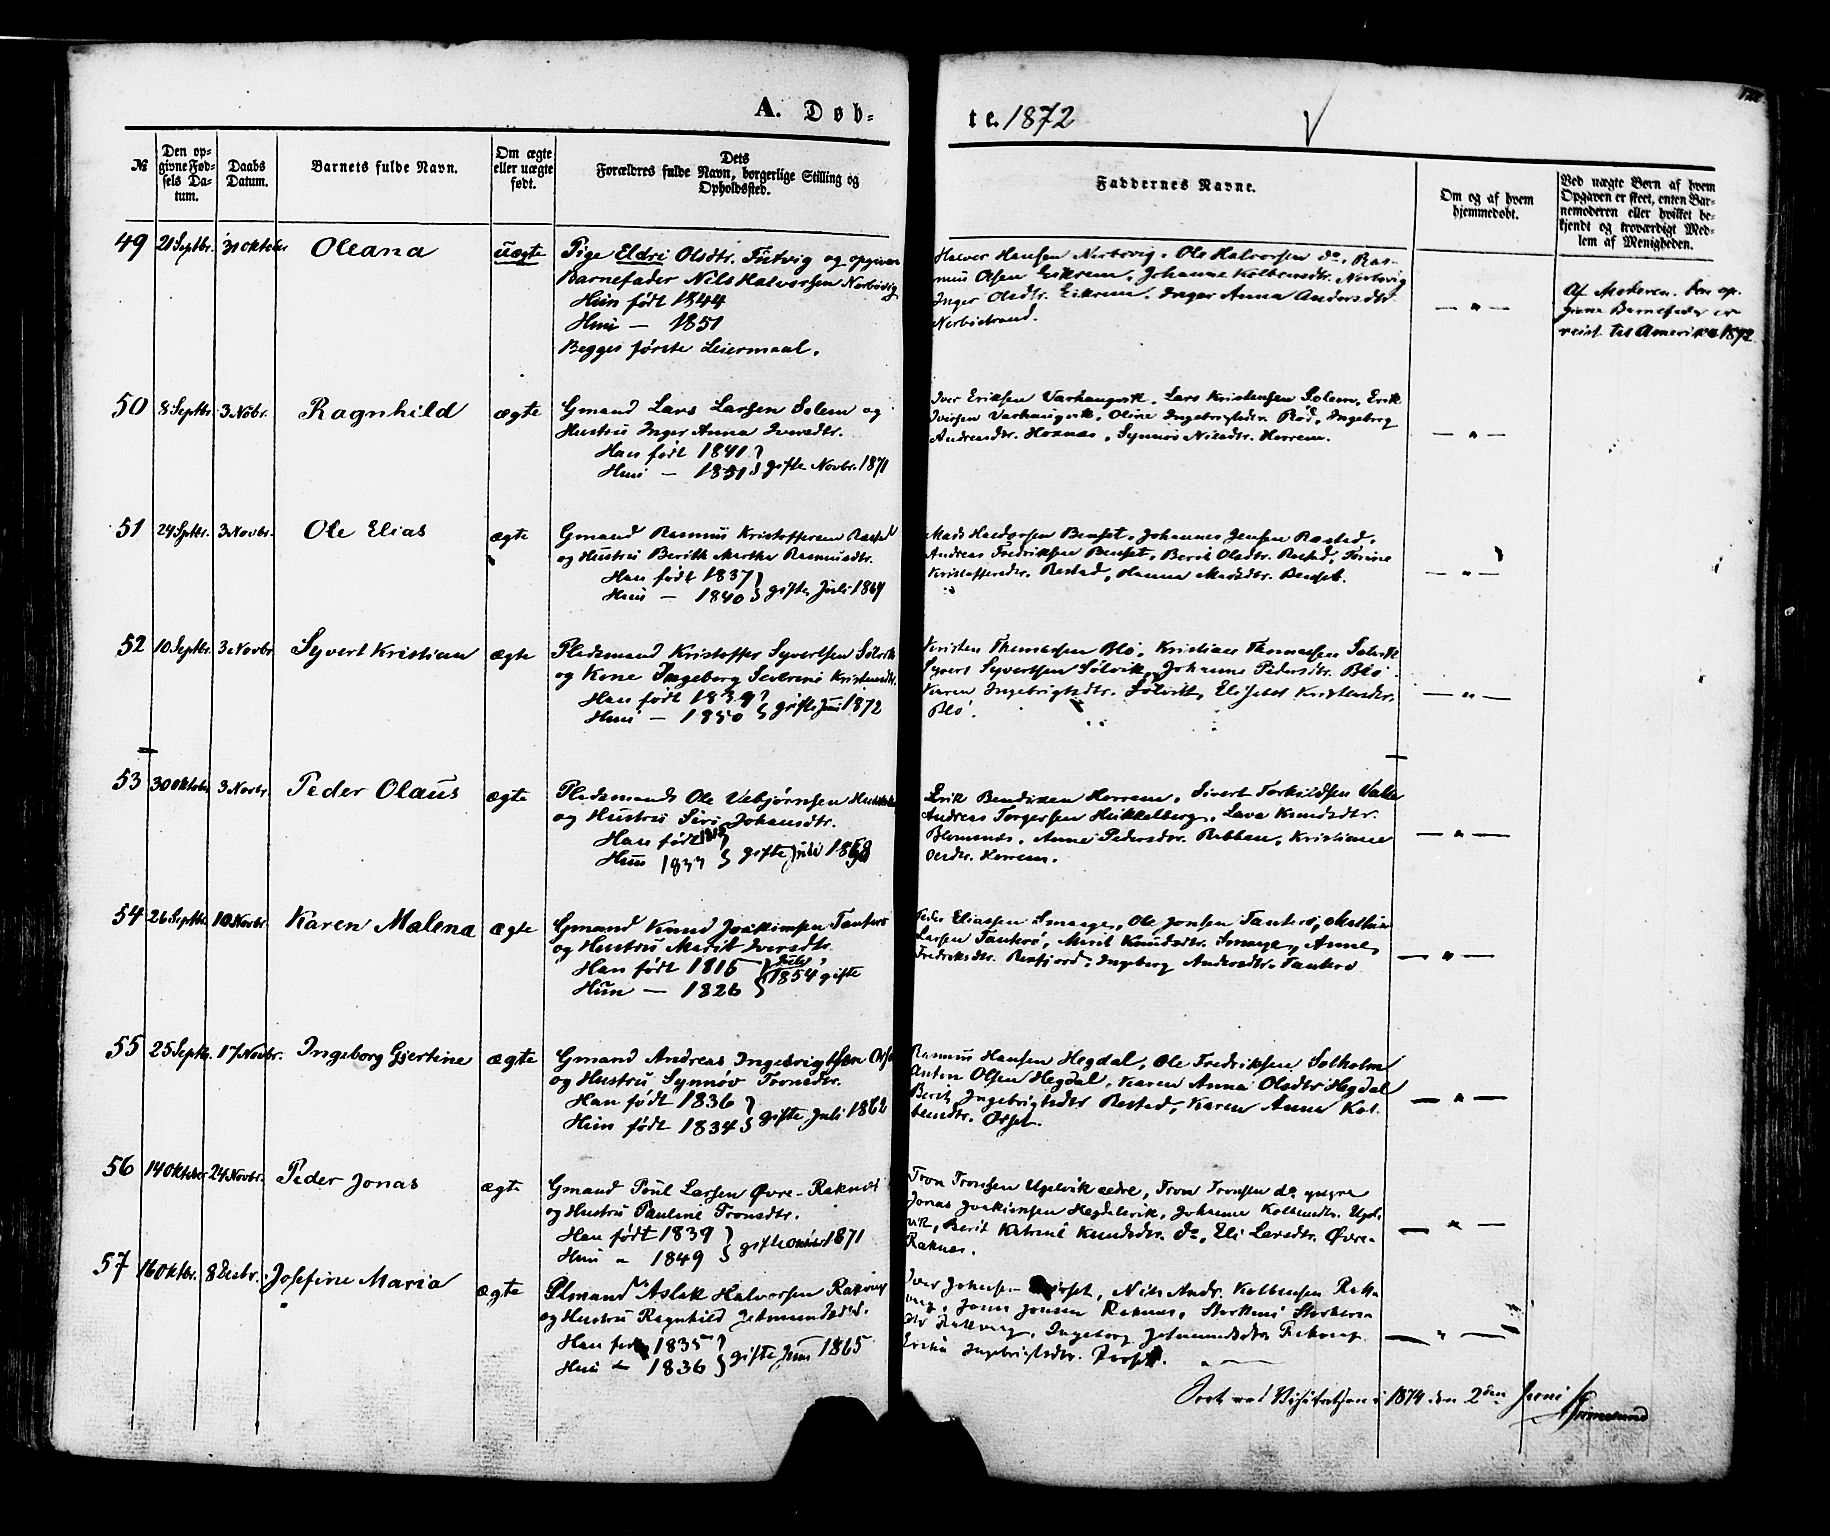 A. Døb-
te. 1872
№
Den op-
givne Fød-
sels Da-
tum.
Daabs
Datum.
Barnets fulde Navn.
Om ægte
eller uægte
født.
Dets
Forældres fulde Navn, borgerlige Stilling og
Opholdssted.
Faddernes Navne.
Om og af hvem
hjemmedøbt.
Ved uægte Børn af hvem
Opgaven er skeet, enten Bar-
nemoderen eller hvilket be-
kjendt og troværdigt Med-
lem af Menigheden.
49 21 Septbr. 31 oktober Oleana uægte
Pige Eldri Olsdtr. Futvig og opgiven
Barnefader Nils Halvorsen Nerbøvig
Hun født 1844
Hun — 1851
Begges første Leiermaal.
Halvor Hansen Nerbøvig, Ole Halvorsen do, Ras-
mus Olsen Eikrem, Johanne Kolbensdtr. Nerbøvig
Inger Olsdtr. Eikrem, Inger Anna Andersdtr.
Nerbøstrand.
— " —
Af Moderen. Den op-
givne Barnefader er
reist til Amerika 1872
50 8 Septbr. 3 Nobr. Ragnhild ægte
Gmand Lars Larsen Solem og
Hustru Inger Anna Iversdtr.
Han født 1841
Hun — 1851 gifte Novbr. 1871
Iver Eriksen Varhaugvik, Lars Kristensen Solem, Erik
Iversen Varhaugvik, Oline Ingebrigtsdtr. Rød, Ingeborg
Andreasdtr. Hoxnæs, Synnøv Nilsdtr. Herrem.
— " —
51 24 Sptbr. 3 Novbr. Ole Elias ægte
Gmand Rasmus KristoffersenRæstad
og Hustru Berith Marthe Rasmusdtr.
Han født 1837
Hun — 1840 gifte Juli 1869
Mads Haldorsen Benset, Johannes Jensen Ræstad,
Andreas Fredriksen Benset, Berit Olsdtr. Ræstad, Torine
Kristoffersdtr. Restad, Hanna Madsdtr. Benset.
— " —
52 10 Septbr. 3 Novbr. Syvert Kristian ægte
Pladsmand Kristoffer Syvertsen Sølvik
og Kone Ingeborg Severine Kristensdtr.
Han født 1839
Hun — 1850 gifte Juni 1872
Kristen Thomassen Blø, Kristian Thomassen Sølvik
Syvert Syvertsen Sølvik, Johanne Pedersdtr. Blø
Karen Ingebrigtsdtr. Sølvik, Elisabet Kristensdtr.
Blø.
— " —
53 30 oktober 3 Novbr. Peder Olaus ægte
Pladsmand Ole Vebjørnsen
og Hustru Siri Johansdtr.
Han født
Hun 1833 gifte Juli 1858
Erik Bendixen Herrem, Sivert Torkildsen Valle
Andreas Torgersen Heikkelberg, Lava Knudsdtr.
Blomsnes, Anne Pedersdtr. Rabben, Kristianne
Olsdtr. Herrem.
— " —
54 26 Septbr. 10 Novbr. Karen Malena ægte
Gmand Knud Joakimsen Tanterø
og Hustru Marit Iversdtr.
Han født 1815
Hun — 1826 Juli 1854 gifte
Peder Eliassen Smaage, Ole Jonsen Tanterø, Mathias
Larsen Tanterø, Marit Knudsdtr. Smaage, Anne
Fredriksdtr. Ræsfjord, Ingeborg Andersdtr. Tanterø
— " —
55 25 Septbr. 17 Novbr. Ingeborg Gjertine ægte
Gmand Andreas Ingebrigtsen Orset
og Hustru Synnøv Tronsdtr.
Han født 1836
Hun født 1834 gifte Juli 1862
Rasmus Hansen Hegdal, Ole Fredriksen Solholm
Anton Olsen Hegdal, Karen Anna Olsdtr Hegdal
Berit Ingebrigtsdtr Restad, Karen Anna Kol-
bensdtr. Orset.
— " —
56 14 oktober 24 Novbr. Peder Jonas ægte
Gmand Poul Larsen Øvre-Raknes
og Hustru Pauline Tronsdtr.
Han født 1839
Hun " 1849 gifte oktober 1871
Tron Tronsen Ugelvik ældre, Tron Tronsen do yngre
Jonas Joakimsen Hegdalvik, Johanne Kolbensdtr. Ugel-
vik, Berit Katrine Knudsdtr. do, Eli Larsdtr. Øvre-
Raknes.
— " —
57 16 oktbr. 8 Desbr. Josefine Maria ægte
Plmand Aslak Halvorsen Rakvaag
og Hustru Ragnhild Jetmundsdtr.
Han født 1835
Hun — 1836 gifte Juni 1865
Iver Johnsen Orset, Nils Andr. Kolbensen Rak-
vaag, Jonas Jonsen Raknes,
dtr Rakvaag, Ingeborg Jetmundsdtr Rakvaag
Ingebrigtsdtr.
— " —
ved Visitatsen i 1874 den 2den Juni